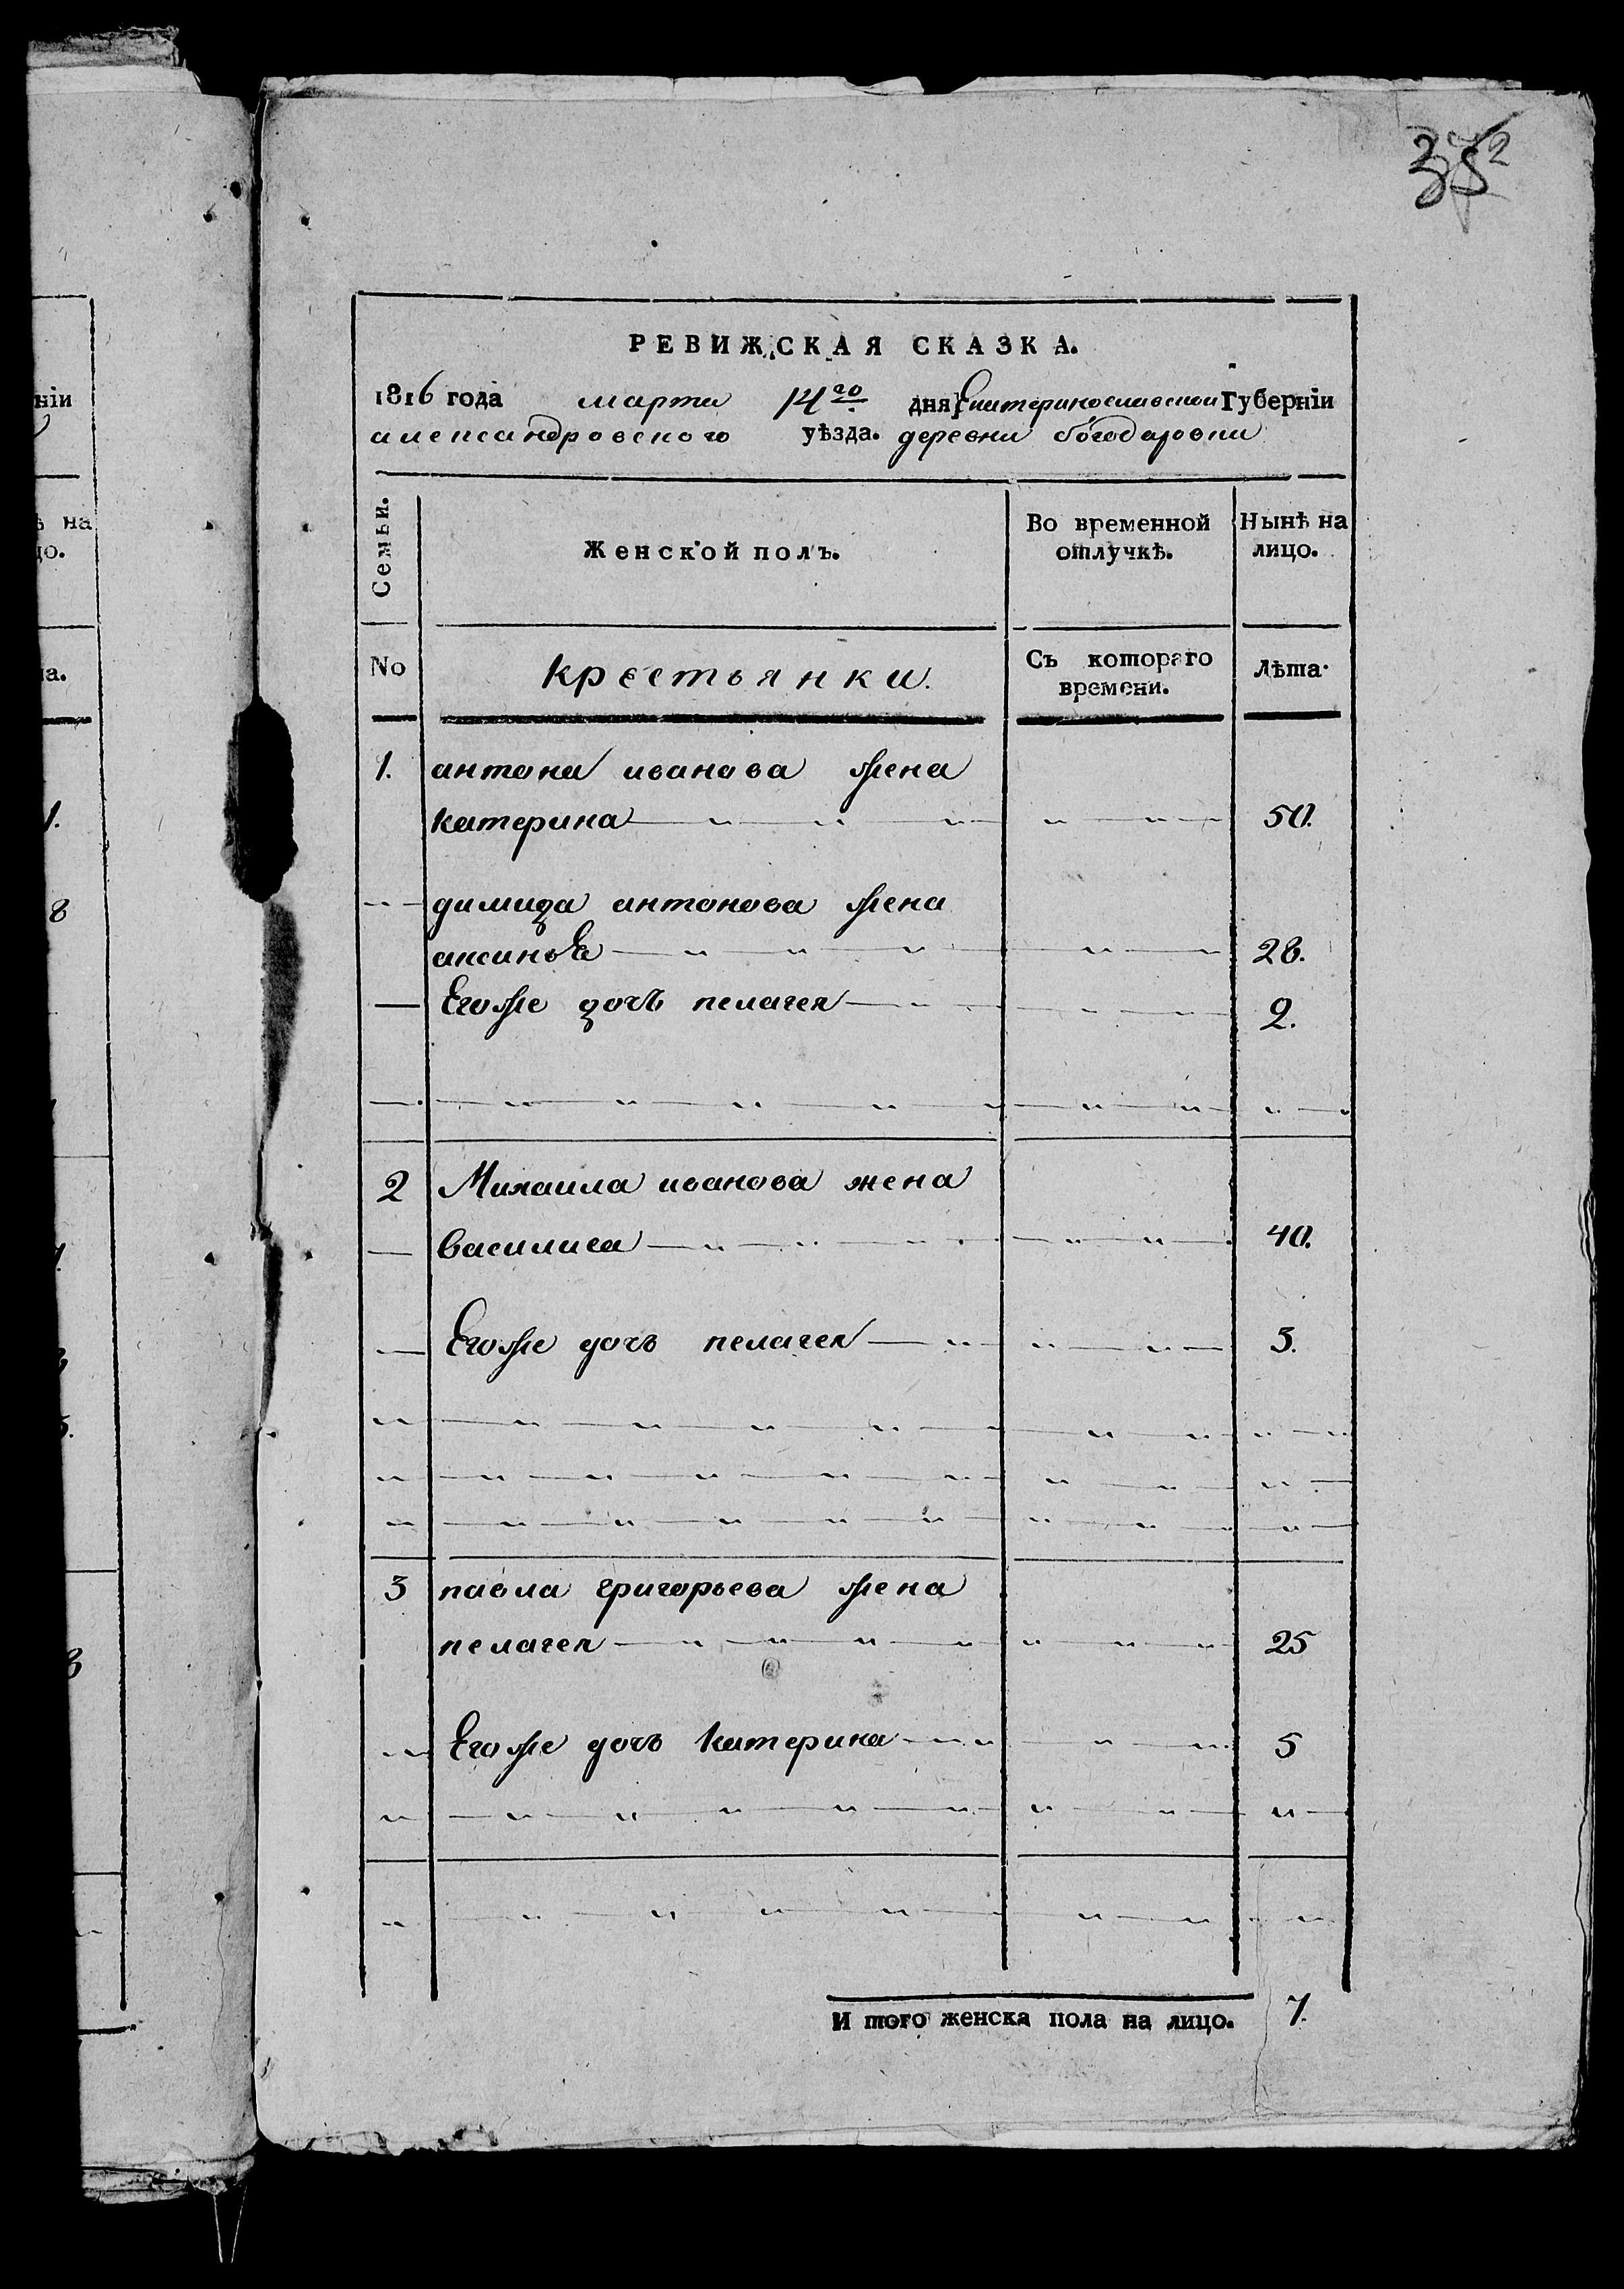 ніи
ѣ на
цо.
та.
1.
8
352
РЕВИЖСКАЯ СКАЗКА.
1816 года марта 14го дня Екатеринославской Губерніи
александровского уѣзда. деревни богодаровки
Семьи.
Женской полъ.
Во временной отлучкѣ.
Нынѣ на лицо.
No
крестьянки.
Съ котораго времени.
Лѣта.
1. антона иванова жена
катерина 50.
димида антонова жена
аксинья 28.
Егоже дочь пелагея 2.
2 Михаила иванова жена
василиса 40.
Егоже дочь пелагея 3.
3 павла григорьева жена
пелагея 25
Егоже дочь катерина 5
И того женска пола на лицо. 7.